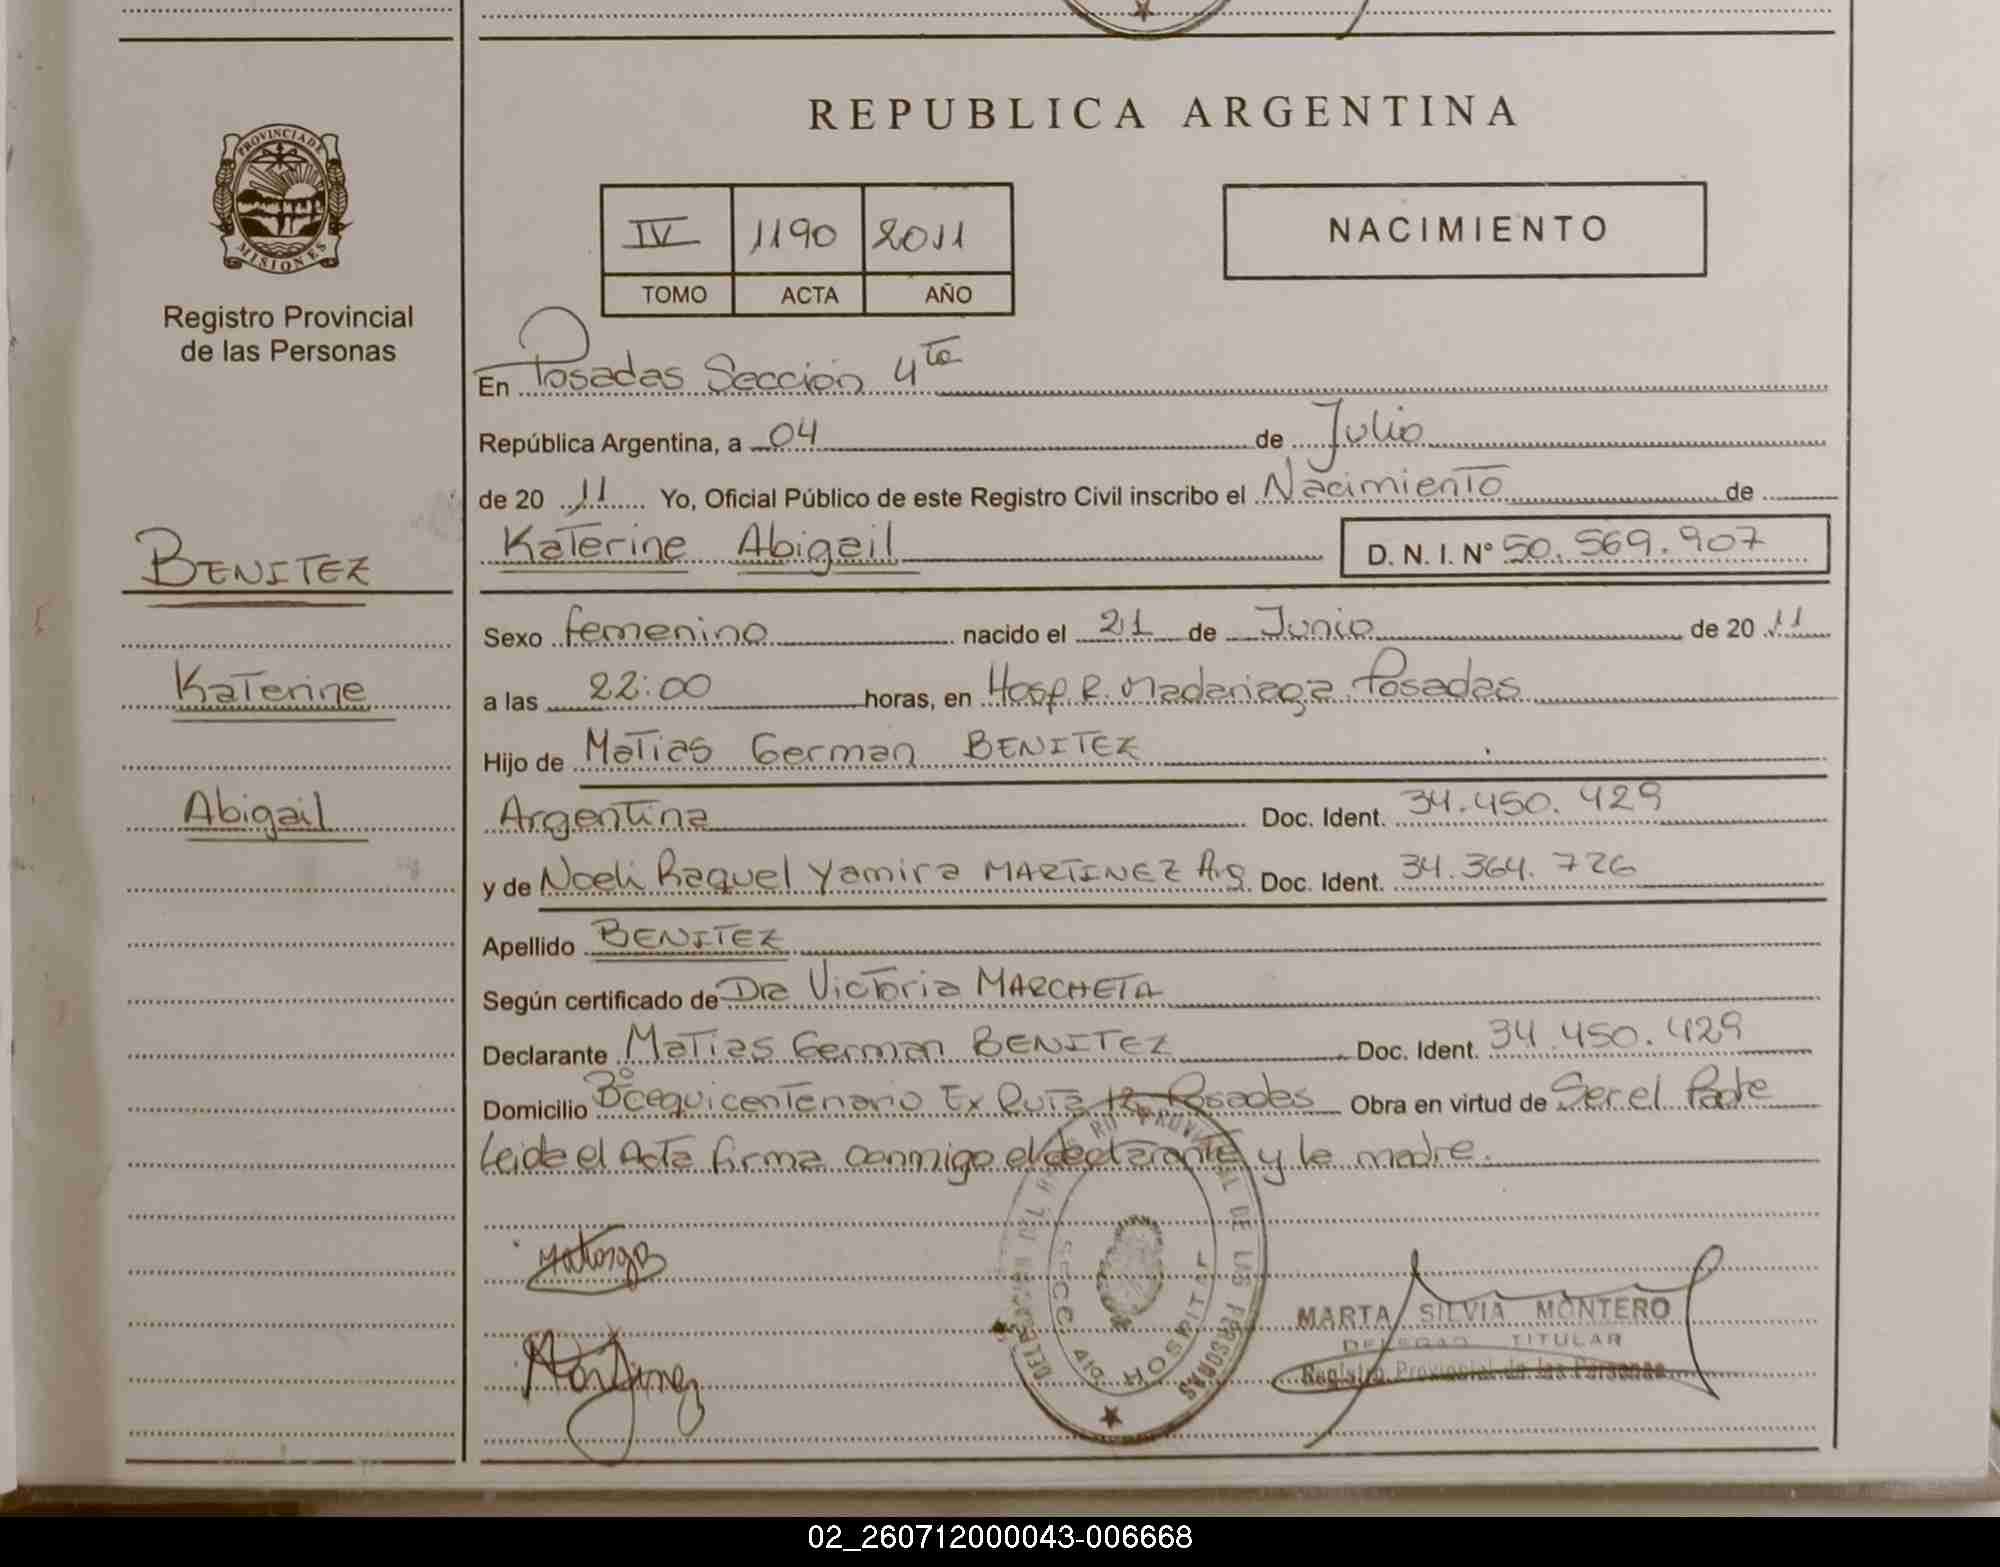 REPUBLICA ARGENTINA
PROVINCIA DE
MISIONES
Registro Provincial
de las Personas
IV 1190 2011
TOMO ACTA AÑO
NACIMIENTO
En Posadas Sección 4ta
República Argentina, a 04 de Julio
de 20 11 Yo, Oficial Público de este Registro Civil inscribo el Nacimiento de
Katerine Abigail D. N. I. N° 50.569.907
BENITEZ
Katerine
Abigail
Sexo femenino nacido el 21 de Junio de 20 11
a las 22:00 horas, en Hosp. R. Madariaga Posadas
Hijo de Matias German BENITEZ
Argentina Doc. Ident. 34.450.429
y de Noeli Raquel Yamira MARTINEZ Arg. Doc. Ident. 34.364.726
Apellido BENITEZ
Según certificado de Dra Victoria MARCHETA
Declarante Matias German BENITEZ Doc. Ident. 34.450.429
Domicilio B° Cequicentenario Ex Ruta 12 Posadas Obra en virtud de Ser el Padre
Leida el Acta firma conmigo el declarante y la madre.
Martinez
HOSPITAL
MARTA SILVIA MONTERO
DELEGAD TITULAR
Registro Provincial de las Personas
02_260712000043-006668